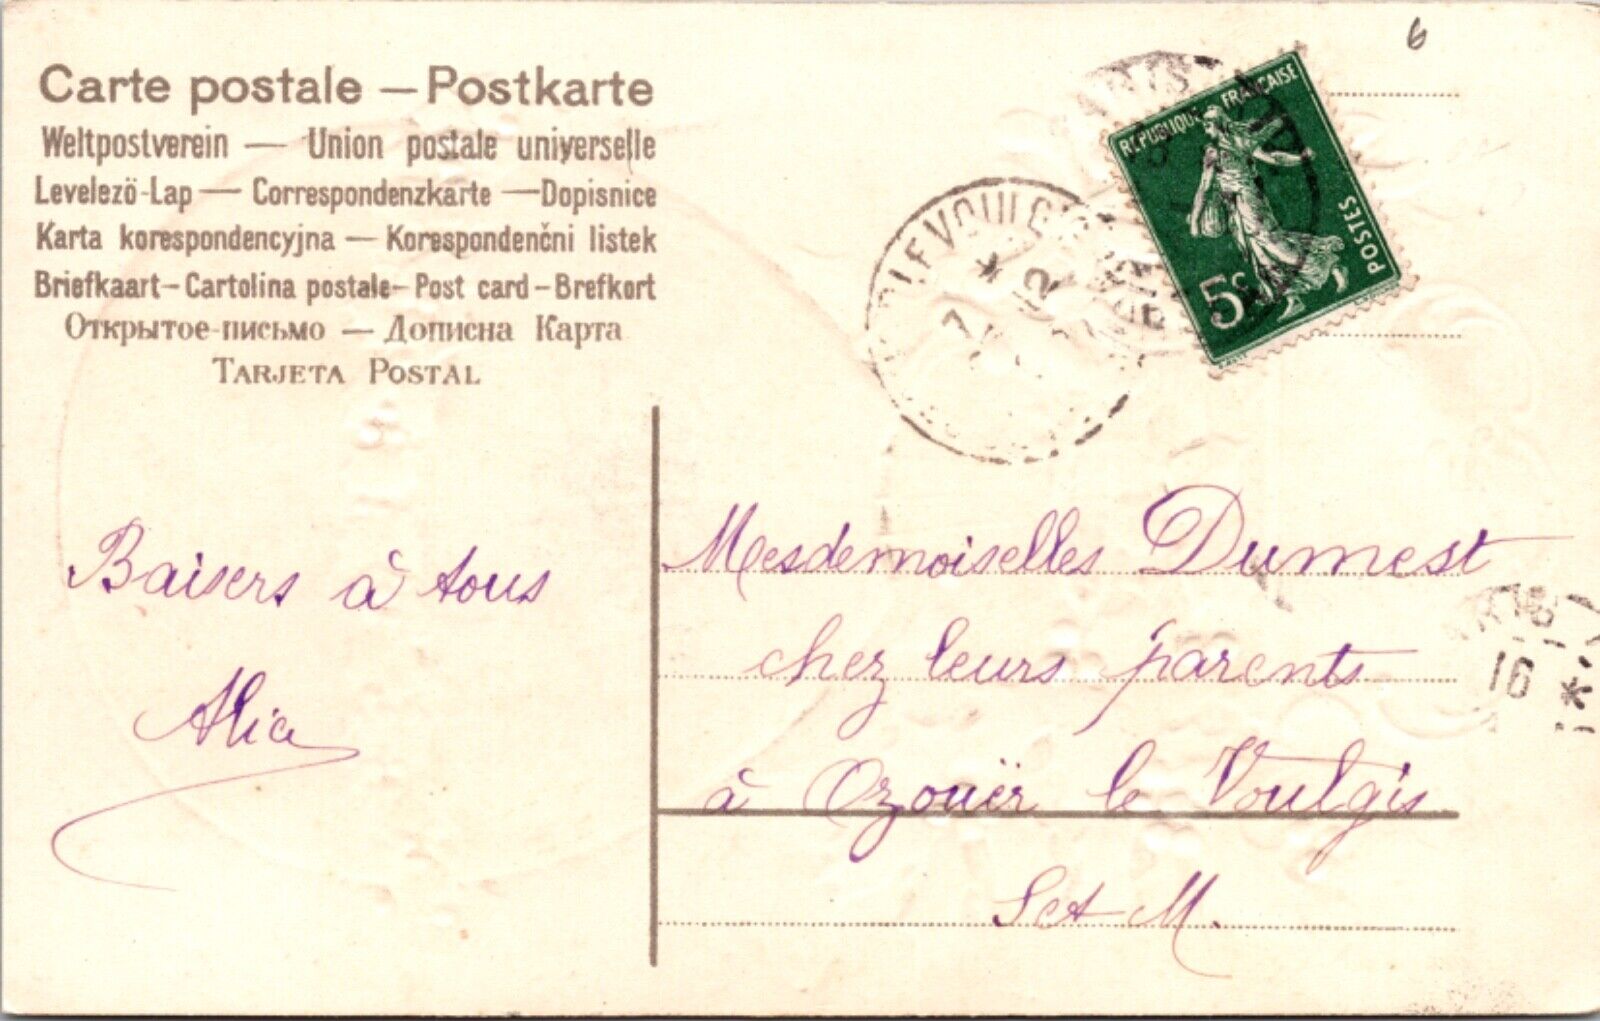 6
Carte postale — Postkarte
Weltpostverein — Union postale universelle
Levelezö-Lap — Correspondenzkarte — Dopisnice
Karta korespondencyjna — Korespondenčni listek
Briefkaart – Cartolina postale – Post card – Brefkort
Открытое-письмо — Дописна Карта
TARJETA POSTAL
REPUBLIQUE FRANÇAISE
POSTES
5c
Baisers à tous
Alia
Mesdemoiselles Dumest
chez leurs parents
à Ozouër le Voulgis
Set M.
16